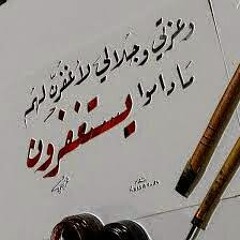 وعزتي وجلالي لأغفرن لهم
ما داموا
يستغفرون